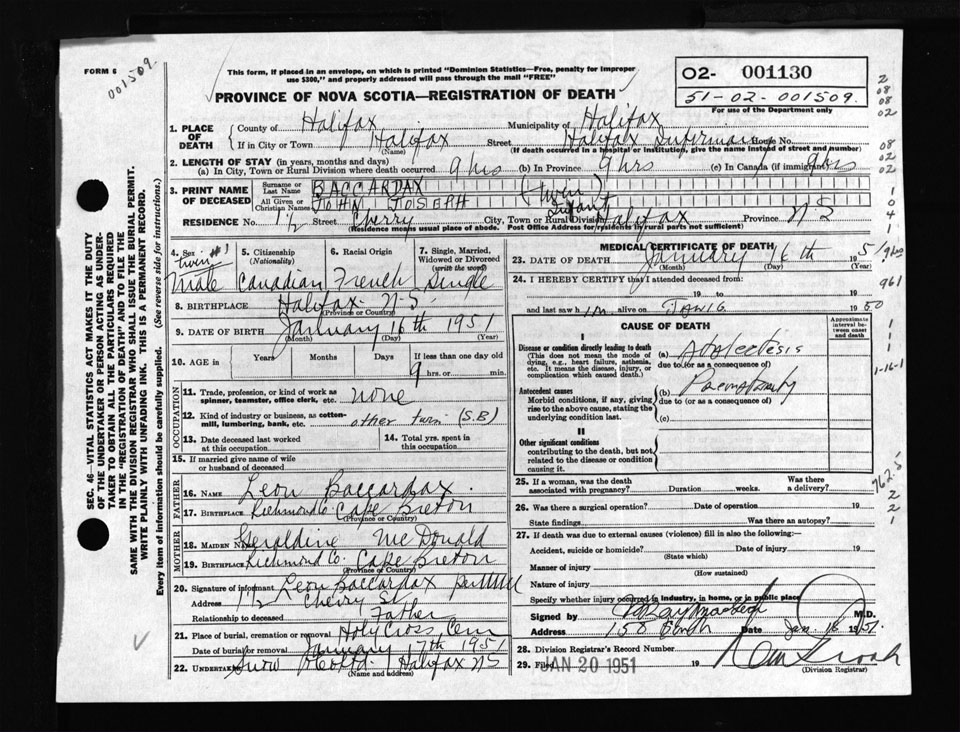 FORM 6
001509.
This form, if placed in an envelope, on which is printed "Dominion Statistics—Free, penalty for improper
use $300," and properly addressed will pass through the mail "FREE"
PROVINCE OF NOVA SCOTIA—REGISTRATION OF DEATH
02- 001130
51-02-001509.
For use of the Department only
1. PLACE OF DEATH
County of Halifax Municipality of Halifax
If in City or Town Halifax Street Halifax Infirmary House No.
(Name) (If death occurred in a hospital or institution, give the name instead of street and number)
2. LENGTH OF STAY (in years, months and days)
(a) In City, Town or Rural Division where death occurred 9 hrs (b) In Province 9 hrs (c) In Canada (if immigrant) 9 hrs
3. PRINT NAME OF DECEASED
Surname or Last Name BACCARDAX (Twin)
All Given or Christian Names JOHN JOSEPH Infant
RESIDENCE No. 1½ Street Cherry City, Town or Rural Division Halifax Province N S
(Residence means usual place of abode. Post Office Address for rural parts not sufficient)
4. Sex twin #1 Male
5. Citizenship (Nationality) Canadian
6. Racial Origin French
7. Single, Married, Widowed or Divorced (write the word) Single
8. BIRTHPLACE Halifax N-S
(Province or Country)
9. DATE OF BIRTH January 16th 1951
(Month) (Day) (Year)
10. AGE in Years Months Days If less than one day old
9 hrs. or min.
OCCUPATION
11. Trade, profession, or kind of work as
spinner, teamster, office clerk, etc. none
12. Kind of industry or business, as cotten-
mill, lumbering, bank, etc. other twin (S.B)
13. Date deceased last worked
at this occupation
14. Total yrs. spent in
this occupation
15. If married give name of wife
or husband of deceased
FATHER
16. NAME Leon Baccardax.
17. BIRTHPLACE Richmond Co Cape Breton
(Province or Country)
MOTHER
18. MAIDEN NAME Geraldine McDonald
19. BIRTHPLACE Richmond Co. Cape Breton
(Province or Country)
20. Signature of informant Leon Baccardax per
Address 1½ Cherry St
Relationship to deceased Father
21. Place of burial, cremation or removal Holy Cross Cem
Date of burial or removal January 17th 1951
22. Undertaker Snow & Co Ltd. Halifax NS
(Name and address)
MEDICAL CERTIFICATE OF DEATH
23. DATE OF DEATH January 16th 51
(Month) (Day) (Year)
24. I HEREBY CERTIFY I attended deceased from:
19 to 19
and last saw him alive on Jan 16 1950
CAUSE OF DEATH
Approximate interval between onset and death
I
Disease or condition directly leading to death
(This does not mean the mode of
dying, e.g., heart failure, asthenia,
etc. It means the disease, injury, or
complication which caused death.)
(a) Atelectesis
due to (or as a consequence of)
Antecedent causes
Morbid conditions, if any, giving
rise to the above cause, stating the
underlying condition last.
(b) Prematurity
due to (or as a consequence of)
(c)
II
Other significant conditions
contributing to the death, but not
related to the disease or condition
causing it.
25. If a woman, was the death
associated with pregnancy? Duration weeks. Was there a delivery?
26. Was there a surgical operation? Date of operation 19
State findings Was there an autopsy?
27. If death was due to external causes (violence) fill in also the following:—
Accident, suicide or homicide? Date of injury 19
(State which)
Manner of injury
(How sustained)
Nature of injury
Specify whether injury occurred in industry, in home, or in public place
Signed by M.D.
Address 158 Date Jan. 18 1951.
28. Division Registrar's Record Number
29. Filed JAN 20 1951 19
(Division Registrar)
SEC. 46—VITAL STATISTICS ACT MAKES IT THE DUTY
OF THE UNDERTAKER OR PERSON ACTING AS UNDER-
TAKER TO OBTAIN ALL THE PARTICULARS REQUIRED
IN THE "REGISTRATION OF DEATH" AND TO FILE THE
SAME WITH THE DIVISION REGISTRAR WHO SHALL ISSUE THE BURIAL PERMIT.
WRITE PLAINLY WITH UNFADING INK. THIS IS A PERMANENT RECORD.
Every item of information should be carefully supplied. (See reverse side for instructions.)
2
08
08
02
08
02
1
1
0
4
1
9 hrs
961
1
1
1
1-16-1
762.5
2
2
1